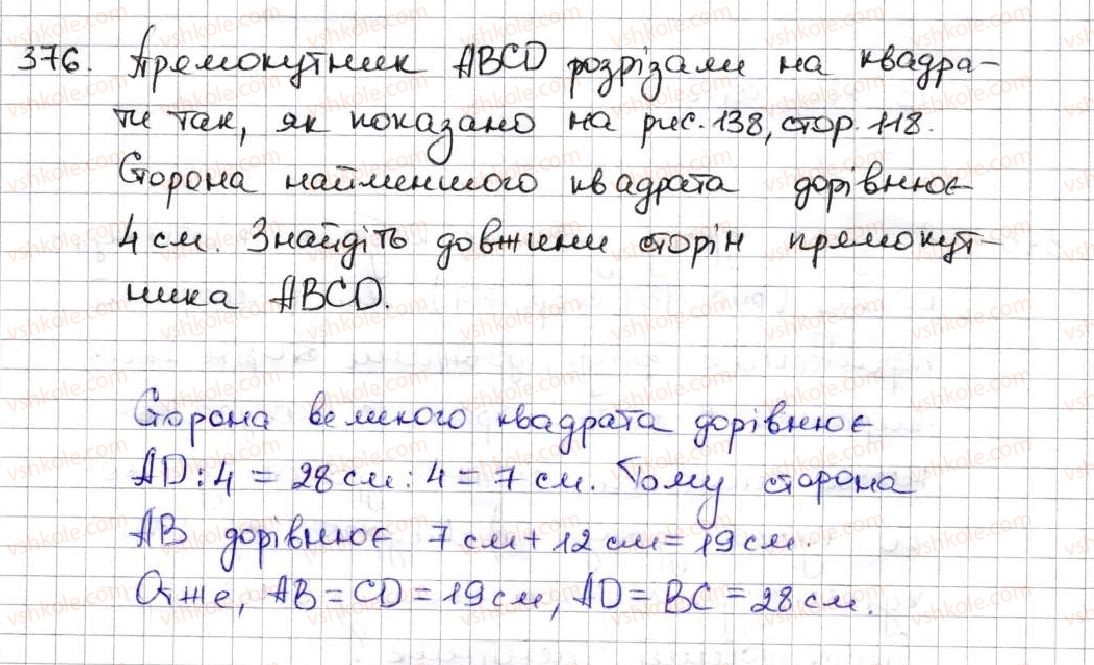 376. Прямокутник ABCD розрізали на квадра-
ти так, як показано на рис. 138, стор. 118.
Сторона найменшого квадрата дорівнює
4 см. Знайдіть довжини сторін прямокут-
ника ABCD.
Сторона великого квадрата дорівнює
AD : 4 = 28 см : 4 = 7 см. Тому сторона
AB дорівнює 7 см + 12 см = 19 см.
Отже, AB = CD = 19 см, AD = BC = 28 см.